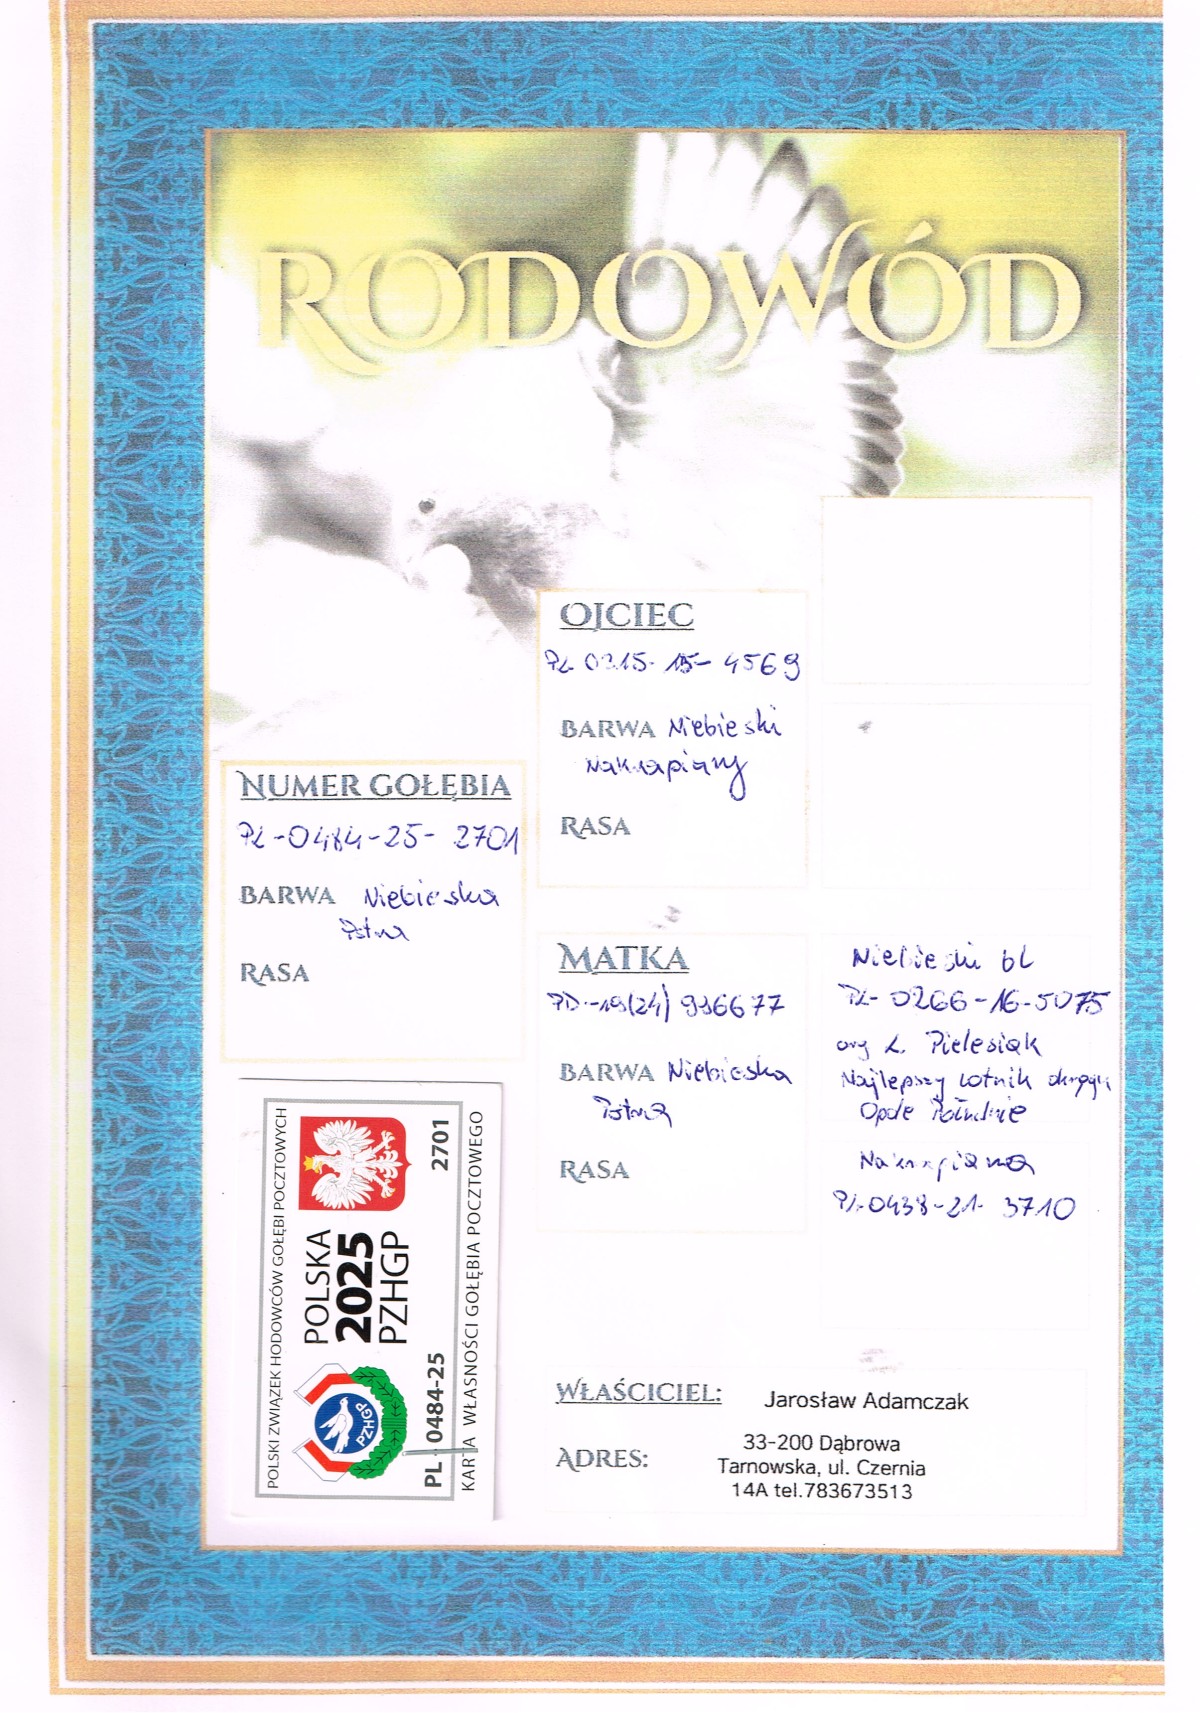 RODOWÓD
OJCIEC
PL 0215-15-4569
BARWA Niebieski
Nakrapiany
RASA
NUMER GOŁĘBIA
PL-0484-25-2701
BARWA Niebieska
Pstra
RASA
MATKA
PL-19(24) 936677
BARWA Niebieska
Pstra
RASA
Niebieski bl
PL-0266-16-5075
org L. Pielesiak
Najlepszy Lotnik okręgu
Opole Południe
Nakrapiana
PL-0438-21-3710
POLSKI ZWIĄZEK HODOWCÓW GOŁĘBI POCZTOWYCH
POLSKA
2025
PZHGP
PZHGP
PL - 0484-25 2701
KARTA WŁASNOŚCI GOŁĘBIA POCZTOWEGO
WŁAŚCICIEL: Jarosław Adamczak
ADRES: 33-200 Dąbrowa
Tarnowska, ul. Czernia
14A tel.783673513